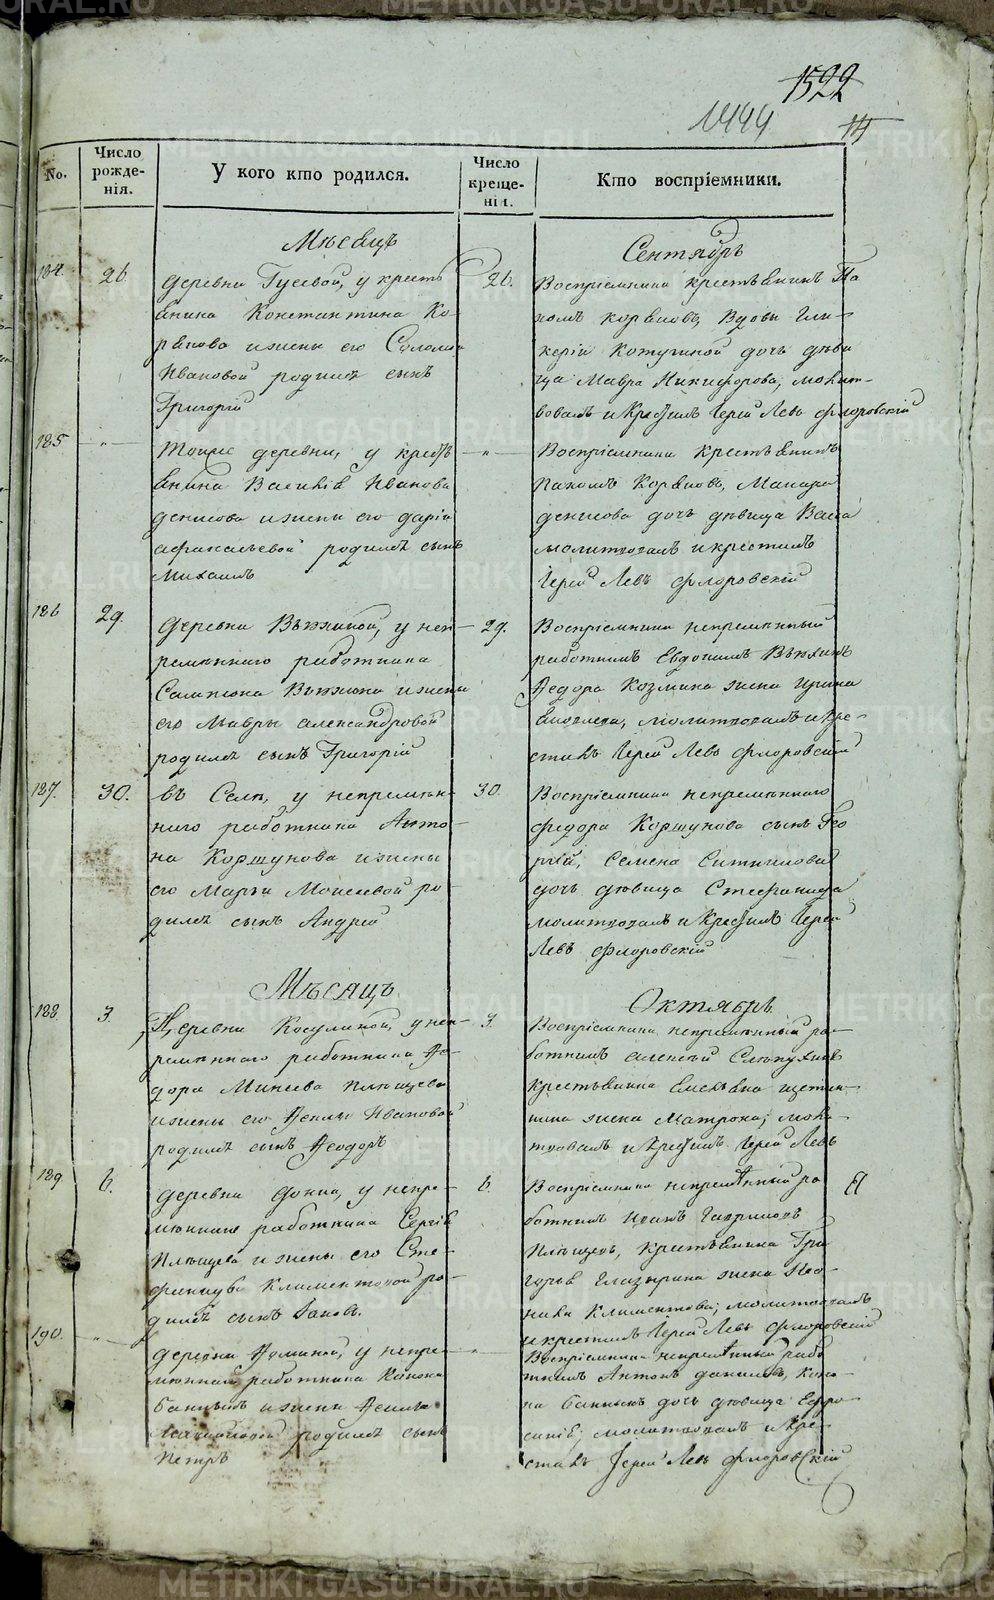 1522
1444
No.
Число рожде-нія.
У кого кто родился.
Число креще-нія.
Кто воспріемники.
Мѣсяцъ
Сентябрь
184.
26.
деревни Гусевой, у кресть
янина Константина Ко-
рякова и жены его Соломіи
Ивановой родился сынъ
Григорій
26.
Воспріемники крестьянинъ Па
хомъ Коряковъ, Вдовы Гли-
керіи Кожугиной дочь дѣви
ца Мавра Никифорова, молит-
вовалъ и Крестилъ Іерей Левъ Флоровскій
185
- " -
тоиже деревни, у кресть
янина Василія Иванова
денисова и жены его дарьи
афанасьевой родился сынъ
Михаилъ
- " -
Воспріемники крестьянинъ
Пахомъ Коряковъ, Макара
денисова дочь дѣвица Васса
молитвовалъ и крестилъ
Іерей Левъ Флоровскій
186
29.
деревни Вяткиной, у неп-
ремѣннаго работника
Сампсона Вяткина и жены
его Мавры александровой
родился сынъ Григорій
29.
Воспріемники непремѣнный
работникъ Евдокимъ Вяткинъ
Федора Козмина жена Ирина
молитвовалъ и кре-
стилъ Іерей Левъ Флоровскій
187.
30.
въ Селѣ, у непремѣн-
наго работника Анто-
на Коршунова и жены
его Марьи Моисеевой ро-
дился сынъ Андрей
30.
Воспріемники непремѣннаго
федора Коршунова сынъ Гео
ргій, Семена Ситникова
дочь дѣвица Стефанида
молитвовалъ и Крестилъ Іерей
Левъ Флоровскій
Мѣсяцъ
Октябрь
188.
3.
Деревни Косулиной, у неп-
ремѣннаго работника Фе-
дора Минеева Плещева
и жены его Ксеніи Ивановой
родился сынъ Феодоръ
3.
Воспріемники непремѣнный ра-
ботникъ алексѣй Слѣпухинъ
крестьянина Емельяна щетин-
нина жена Матрона; моли-
твовалъ и крестилъ Іерей Левъ
189
6.
деревни тоиже, у непре-
мѣннаго работника Сергія
Плещева и жены его Сте-
фаниды Климентовой ро-
дился сынъ Іаковъ.
6.
Воспріемники непремѣнный ра
ботникъ Иванъ Гавриловъ
Плещевъ, крестьянина Гри
горья Глазырина жена
Климентова; молитвовалъ
и крестилъ Іерей Левъ Флоровскій
190.
- " -
деревни Фоминой, у непре-
мѣннаго работника Конона
банныхъ и жены Ксеніи
родился сынъ
Петръ
Воспріемники непремѣнный рабо
тникъ Антонъ даниловъ, Коно-
на банныхъ дочь дѣвица Ефро-
синія; молитвовалъ и кре-
стилъ Іерей Левъ Флоровскій
METRIKI.GASO-URAL.RU